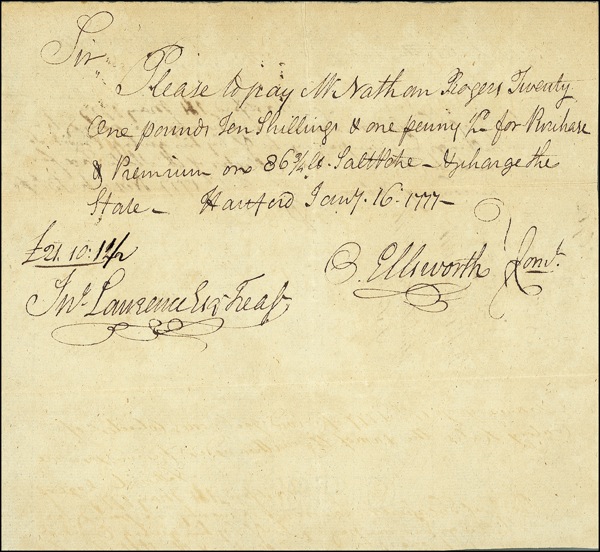 Sir
Please to pay Mr Nathan Rogers Twenty
One pounds Ten Shillings & one penny ½ for Purchase
& Premium on 86¾ lb. Salt Petre – & charge the
State – Hartford Jany. 16. 1777 –
£21.10.1½
O. Ellsworth } Comt.
Jno. Lawrence Esqr Treasr